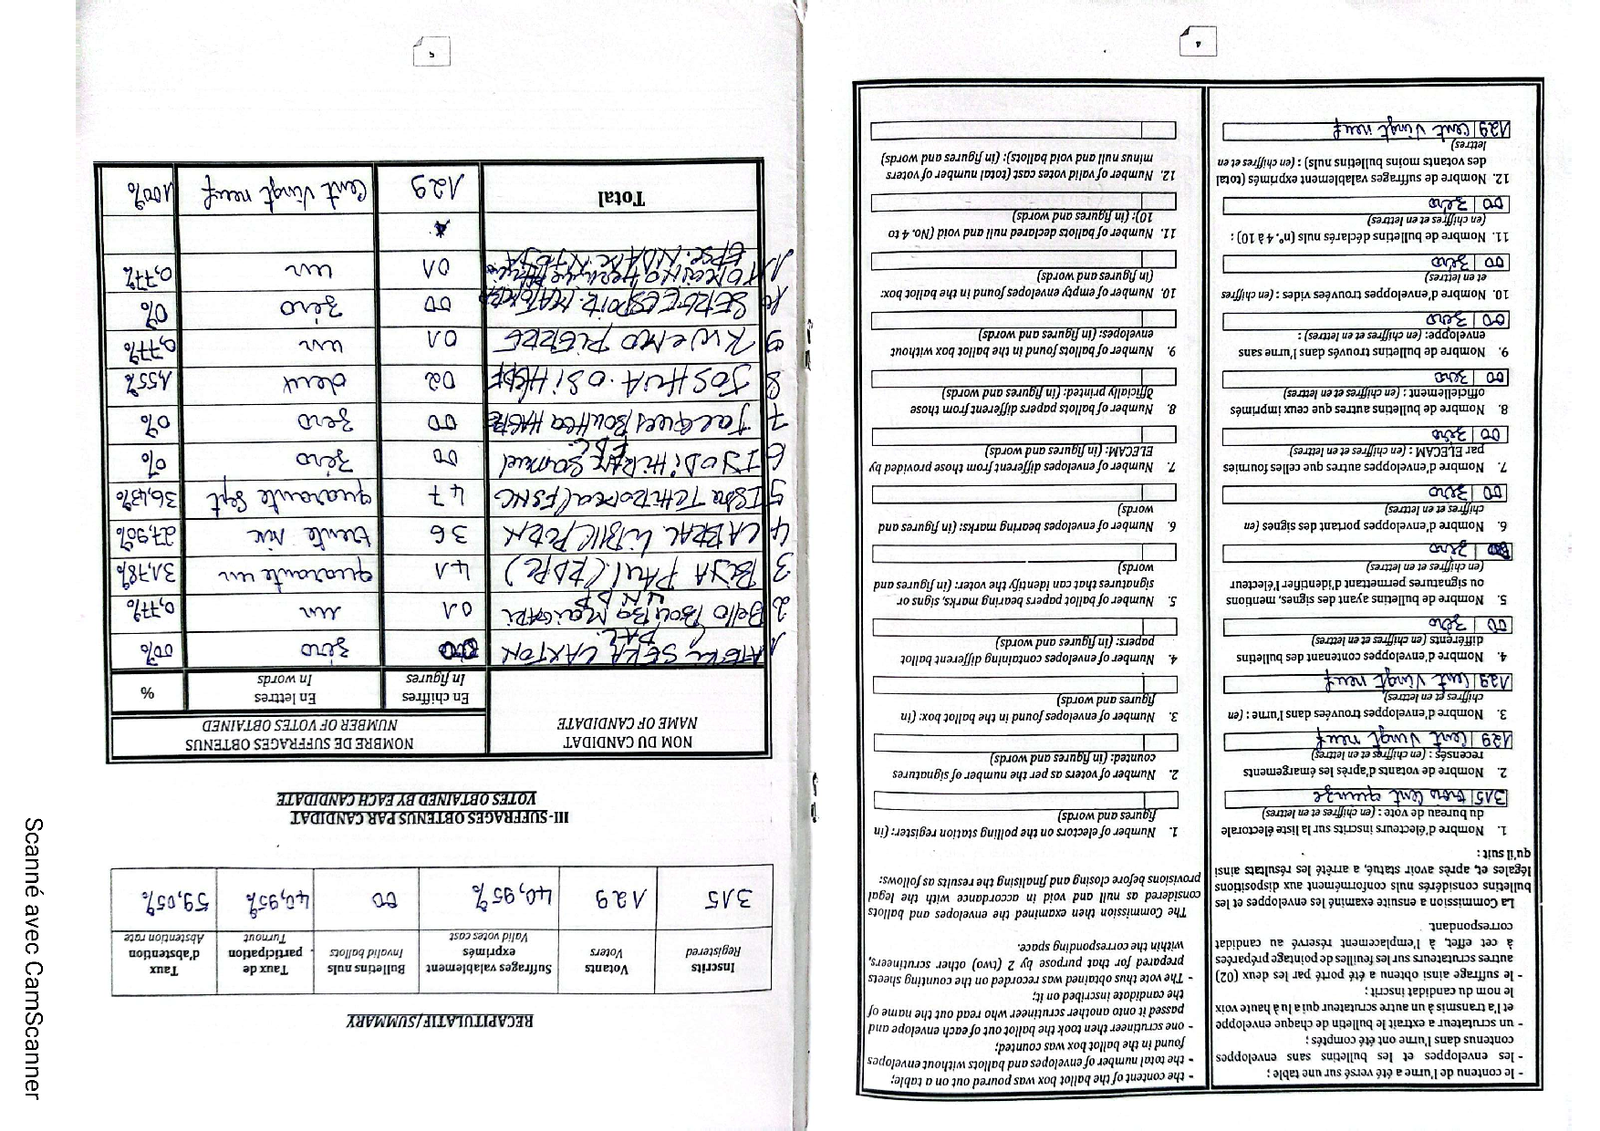 4
- le contenu de l'urne a été versé sur une table ;
- les enveloppes et les bulletins sans enveloppes
contenus dans l'urne ont été comptés ;
- un scrutateur a extrait le bulletin de chaque enveloppe
et l'a transmis à un autre scrutateur qui a lu à haute voix
le nom du candidat inscrit ;
- le suffrage ainsi obtenu a été porté par les deux (02)
autres scrutateurs sur les feuilles de pointage préparées
à cet effet, à l'emplacement réservé au candidat
correspondant.
La Commission a ensuite examiné les enveloppes et les
bulletins considérés nuls conformément aux dispositions
légales et, après avoir statué, a arrêté les résultats ainsi
qu'il suit :
1. Nombre d'électeurs inscrits sur la liste électorale
du bureau de vote : (en chiffres et en lettres)
315 trois cent quinze
2. Nombre de votants d'après les émargements
recensés : (en chiffres et en lettres)
129 Cent vingt neuf
3. Nombre d'enveloppes trouvées dans l'urne : (en
chiffres et en lettres)
129 Cent vingt neuf
4. Nombre d'enveloppes contenant des bulletins
différents (en chiffres et en lettres)
00 zéro
5. Nombre de bulletins ayant des signes, mentions
ou signatures permettant d'identifier l'électeur
(en chiffres et en lettres)
zéro
6. Nombre d'enveloppes portant des signes (en
chiffres et en lettres)
00 zéro
7. Nombre d'enveloppes autres que celles fournies
par ELECAM : (en chiffres et en lettres)
00 zéro
8. Nombre de bulletins autres que ceux imprimés
officiellement : (en chiffres et en lettres)
00 zéro
9. Nombre de bulletins trouvés dans l'urne sans
enveloppe: (en chiffres et en lettres) :
00 zéro
10. Nombre d'enveloppes trouvées vides : (en chiffres
et en lettres)
00 zéro
11. Nombre de bulletins déclarés nuls (n°. 4 à 10) :
(en chiffres et en lettres)
00 zéro
12. Nombre de suffrages valablement exprimés (total
des votants moins bulletins nuls) : (en chiffres et en
lettres)
129 Cent vingt neuf
- the content of the ballot box was poured out on a table;
- the total number of envelopes and ballots without envelopes
found in the ballot box was counted;
- one scrutineer then took the ballot out of each envelope and
passed it onto another scrutineer who read out the name of
the candidate inscribed on it;
- The vote thus obtained was recorded on the counting sheets
prepared for that purpose by 2 (two) other scrutineers,
within the corresponding space.
The Commission then examined the envelopes and ballots
considered as null and void in accordance with the legal
provisions before closing and finalising the results as follows:
1. Number of electors on the polling station register: (in
figures and words)
2. Number of voters as per the number of signatures
counted: (in figures and words)
3. Number of envelopes found in the ballot box: (in
figures and words)
4. Number of envelopes containing different ballot
papers: (in figures and words)
5. Number of ballot papers bearing marks, signs or
signatures that can identify the voter: (in figures and
words)
6. Number of envelopes bearing marks: (in figures and
words)
7. Number of envelopes different from those provided by
ELECAM: (in figures and words)
8. Number of ballots papers different from those
officially printed: (in figures and words)
9. Number of ballots found in the ballot box without
envelopes: (in figures and words)
10. Number of empty envelopes found in the ballot box:
(in figures and words)
11. Number of ballots declared null and void (No. 4 to
10): (in figures and words)
12. Number of valid votes cast (total number of voters
minus null and void ballots): (in figures and words)
5
RECAPITULATIF/SUMMARY
Inscrits Registered
Votants Voters
Suffrages valablement exprimés Valid votes cast
Bulletins nuls Invalid ballots
Taux de participation Turnout
Taux d'abstention Abstention rate
315 129 40,95% 00 40,95% 59,05%
III- SUFFRAGES OBTENUS PAR CANDIDAT
VOTES OBTAINED BY EACH CANDIDATE
NOM DU CANDIDAT
NAME OF CANDIDATE
NOMBRE DE SUFFRAGES OBTENUS
NUMBER OF VOTES OBTAINED
En chiffres In figures
En lettres In words
%
1 ATEKI SETA CAXTON (PAL) 00 zéro 00%
2 Bello BOUBA MAIGARI UNDP 01 un 0,77%
3 BIYA PAUL (RDPC) 41 quarante un 31,78%
4 CABRAL LIBII / PCRN 36 trente six 27,90%
5 ISSA TCHIROMA / FSNC 47 quarante sept 36,43%
6 IYODI HIRAM Samuel 00 zéro 0%
7 Jacques BOUHGA HAGBE 00 zéro 0%
8 JOSHUA OSIH 02 deux 1,55%
9 KWEMO PIERRE 01 un 0,77%
10 SERGE ESPOIR MATOMBA 00 zéro 0%
11 TOMAINO HERMINE Patricia EPSE NDAM NJOYA 01 un 0,77%
Total 129 Cent vingt neuf 100%
Scanné avec CamScanner